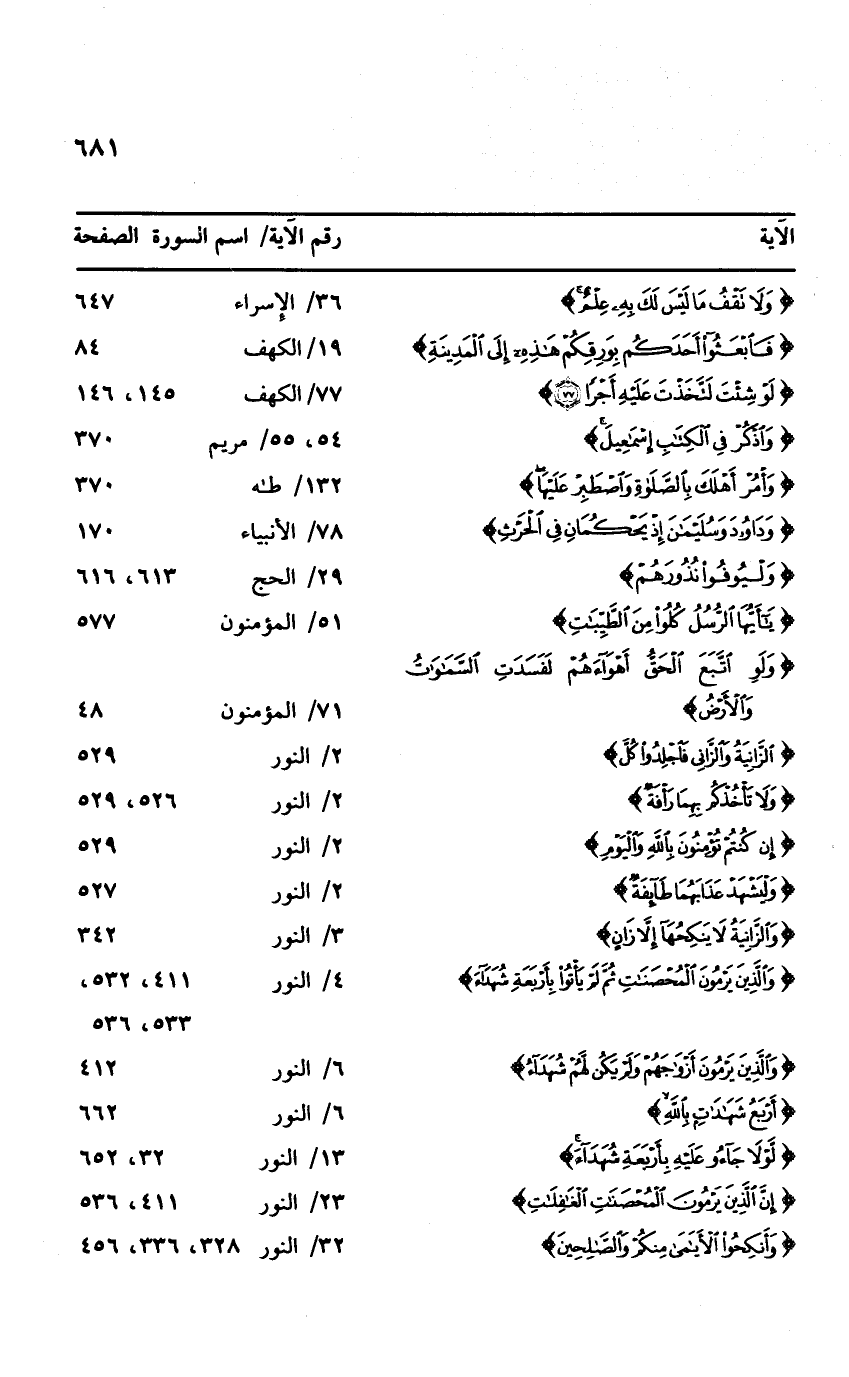 ٦٨١
الآية رقم الآية/ اسم السورة الصفحة
﴿ وَلَا نَقْفُ مَا لَيْسَ لَكَ بِهِۦ عِلْمٌ ﴾ ٣٦/ الإسراء ٦٤٧
﴿ فَٱبْعَثُوٓا۟ أَحَدَكُم بِوَرِقِكُمْ هَٰذِهِۦٓ إِلَى ٱلْمَدِينَةِ ﴾ ١٩/ الكهف ٨٤
﴿ لَوْ شِئْتَ لَتَّخَذْتَ عَلَيْهِ أَجْرًا ٧٧ ﴾ ٧٧/ الكهف ١٤٥، ١٤٦
﴿ وَٱذْكُرْ فِى ٱلْكِتَٰبِ إِسْمَٰعِيلَ ﴾ ٥٤، ٥٥/ مريم ٣٧٠
﴿ وَأْمُرْ أَهْلَكَ بِٱلصَّلَوٰةِ وَٱصْطَبِرْ عَلَيْهَا ﴾ ١٣٢/ طـٰه ٣٧٠
﴿ وَدَاوُۥدَ وَسُلَيْمَٰنَ إِذْ يَحْكُمَانِ فِى ٱلْحَرْثِ ﴾ ٧٨/ الأنبياء ١٧٠
﴿ وَلْيُوفُوا۟ نُذُورَهُمْ ﴾ ٢٩/ الحج ٦١٣، ٦١٦
﴿ يَٰٓأَيُّهَا ٱلرُّسُلُ كُلُوا۟ مِنَ ٱلطَّيِّبَٰتِ ﴾ ٥١/ المؤمنون ٥٧٧
﴿ وَلَوِ ٱتَّبَعَ ٱلْحَقُّ أَهْوَآءَهُمْ لَفَسَدَتِ ٱلسَّمَٰوَٰتُ
وَٱلْأَرْضُ ﴾ ٧١/ المؤمنون ٤٨
﴿ ٱلزَّانِيَةُ وَٱلزَّانِى فَٱجْلِدُوا۟ كُلَّ ﴾ ٢/ النور ٥٢٩
﴿ وَلَا تَأْخُذْكُم بِهِمَا رَأْفَةٌ ﴾ ٢/ النور ٥٢٦، ٥٢٩
﴿ إِن كُنتُمْ تُؤْمِنُونَ بِٱللَّهِ وَٱلْيَوْمِ ﴾ ٢/ النور ٥٢٩
﴿ وَلْيَشْهَدْ عَذَابَهُمَا طَآئِفَةٌ ﴾ ٢/ النور ٥٢٧
﴿ وَٱلزَّانِيَةُ لَا يَنكِحُهَآ إِلَّا زَانٍ ﴾ ٣/ النور ٣٤٢
﴿ وَٱلَّذِينَ يَرْمُونَ ٱلْمُحْصَنَٰتِ ثُمَّ لَمْ يَأْتُوا۟ بِأَرْبَعَةِ شُهَدَآءَ ﴾ ٤/ النور ٤١١، ٥٣٢،
٥٣٣، ٥٣٦
﴿ وَٱلَّذِينَ يَرْمُونَ أَزْوَٰجَهُمْ وَلَمْ يَكُن لَّهُمْ شُهَدَآءُ ﴾ ٦/ النور ٤١٢
﴿ أَرْبَعُ شَهَٰدَٰتٍۭ بِٱللَّهِ ﴾ ٦/ النور ٦٦٢
﴿ لَّوْلَا جَآءُو عَلَيْهِ بِأَرْبَعَةِ شُهَدَآءَ ﴾ ١٣/ النور ٣٢، ٦٥٢
﴿ إِنَّ ٱلَّذِينَ يَرْمُونَ ٱلْمُحْصَنَٰتِ ٱلْغَٰفِلَٰتِ ﴾ ٢٣/ النور ٤١١، ٥٣٦
﴿ وَأَنكِحُوا۟ ٱلْأَيَٰمَىٰ مِنكُمْ وَٱلصَّٰلِحِينَ ﴾ ٣٢/ النور ٣٢٨، ٣٣٦، ٤٥٦